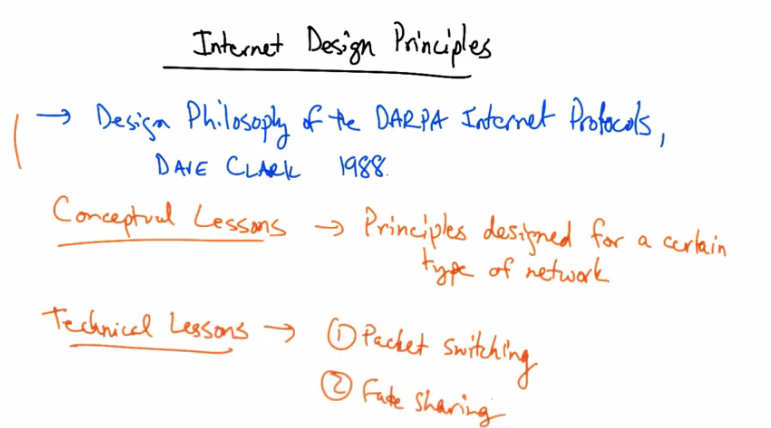 Internet Design Principles
→ Design Philosophy of the DARPA Internet Protocols,
DAVE CLARK 1988.
Conceptual Lessons → Principles designed for a certain
type of network
Technical Lessons → ① Packet switching
② Fate sharing